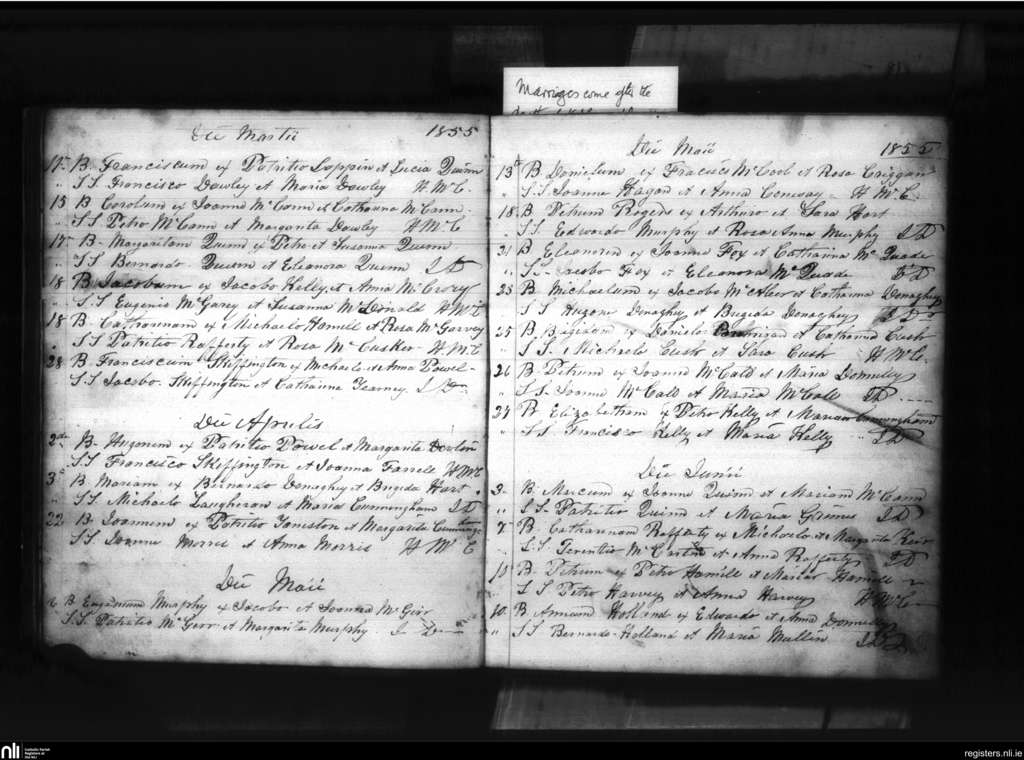 Marriages come after the
Die Martii 1855
B. Franciscum ex Patritio Loppin et Lucia Quinn
" SS. Francisco Dowley et Maria Dowley H McC
15 B Carolum ex Joanne McCann et Catharina McCann
SS Petro McCann et Margarita Dowley H McC
17 B. Margaritam Quinn ex Petro et Susanna Quinn
" SS Bernardo Quinn et Eleanora Quinn J D
18 B Jacobum ex Jacobo Kelly et Anna McCrory
" S.S Eugenio McGarey et Susanna McDonald H McC
18 B Catharinam ex Michaelo Hamill et Rosa McGarvey
SS Patritio Rafferty et Rosa McCusker H. McC
28 B. Franciscum Skiffington ex Michaelo et Anna Powel
S.S Jacobo Skiffington et Catharina Kearney J D
Die Aprilis
2 B. Hugonem ex Patritio Powel et Margarita Devlin
SS Francisco Skeffington et Joanna Farrell H McC
3 B. Mariam ex Bernardo Donaghey et Brigida Hart
" SS Michaelo Laugheran et Maria Cunningham J D
22 B. Joannem ex Patritio et Margarita
SS Joanne Morris et Anna Morris H McC
Die Maii
6 B Eugenium Murphy ex Jacobo et Joanna McGirr
S.S. Patritio McGirr et Margarita Murphy J D
Die Maii 1855
13 B Danielum ex McCool et Rosa Criggan
" S.S. Joanne Hagan et Anna Conway H McC
18 B. Petrum Rogers ex Arthuro et Sara Hart
" SS. Edwardo Murphy et Rosa Anna Murphy J D
21 B Eleanoram ex Joanne Fox et Catharina McQuade
" S.S. Jacobo Fox et Eleanora McQuade J D
23 B. Michaelum ex Jacobo McAleer et Catharina Donaghey
S S Hugone Donaghey et Brigida Donaghey J D
25 B ex Daniele et Catharina Cush
" S S. Michaelo Cush et Sara Cush H McC
26 B. Petrum ex Joanne McCall et Maria Donnelly
" SS. Joanne McCall et Maria McCall J D
27 B. Elizabetham ex Petro Kelly et Maria Cunningham
" SS Francisco Kelly et Maria Kelly " J D
Die Junii
3 B. Marcum ex Joanne Quinn et Mariam McCann
" S.S. Patritio Quinn et Maria Grimes J D
7 B. Catharinam Rafferty ex Michaelo et Margarita Kerr
" S.S Terentio et Anna Rafferty J D
10 B. Petrum ex Petro Hamill et Maria Hamill
" S S Petro Harvey et Anna Harvey H McC
10 B Annam Holland ex Edwardo et Anna Donnelly
" SS Bernardo Holland et Maria Mullin J D
nli
Catholic Parish
Registers at
the NLI
registers.nli.ie